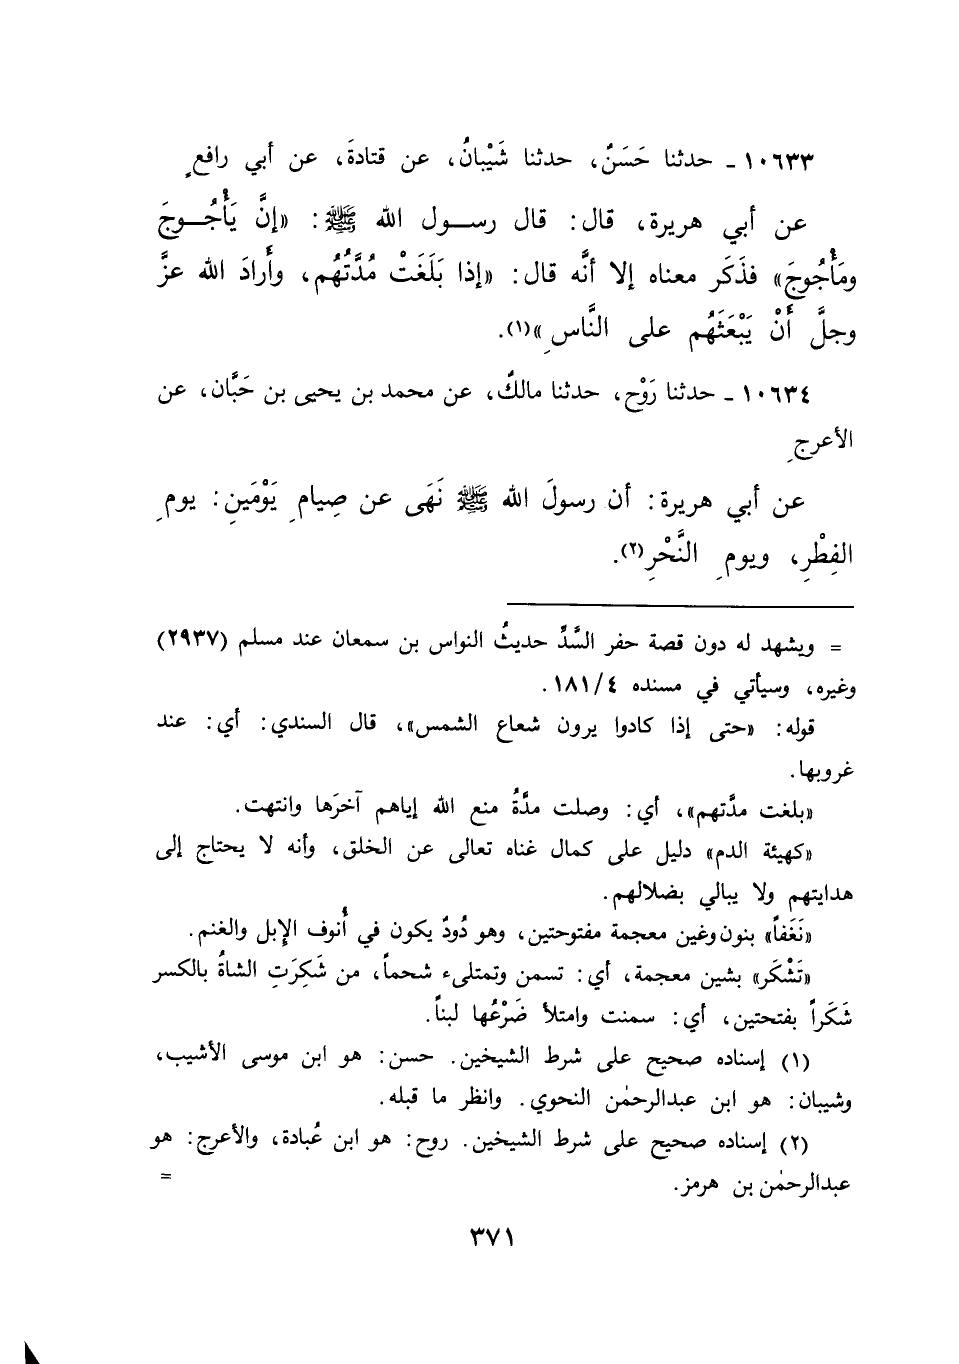 ١٠٦٣٣ - حدثنا حَسَنٌ، حدثنا شَيْبانُ، عن قتادةَ، عن أبي رافعٍ
عن أبي هريرة، قال: قال رســول الله ﷺ: «إنَّ يَأْجُــوجَ
ومَأْجُوجَ» فذَكَر معناه إلا أنَّه قال: «إذا بَلَغَتْ مُدَّتُهُم، وأَرادَ الله عزَّ
وجلَّ أَنْ يَبْعَثَهُم على النَّاسِ»(١).
١٠٦٣٤ - حدثنا رَوْح، حدثنا مالكٌ، عن محمد بن يحيى بن حَبَّان، عن
الأعرجِ
عن أبي هريرة: أن رسولَ الله ﷺ نَهَى عن صِيامِ يَوْمَينِ: يومِ
الفِطْرِ، ويومِ النَّحْرِ(٢).
= ويشهد له دون قصة حفر السَّدِّ حديثُ النواس بن سمعان عند مسلم (٢٩٣٧)
وغيره، وسيأتي في مسنده ٤/١٨١.
قوله: «حتى إذا كادوا يرون شعاع الشمس»، قال السندي: أي: عند
غروبها.
«بلغت مدَّتهم»، أي: وصلت مدَّةُ منع الله إياهم آخرَها وانتهت.
«كهيئة الدم» دليل على كمال غناه تعالى عن الخلق، وأنه لا يحتاج إلى
هدايتهم ولا يبالي بضلالهم.
«نَغَفاً» بنون وغين معجمة مفتوحتين، وهو دُودٌ يكون في أُنوف الإبل والغنم.
«تَشْكَر» بشين معجمة، أي: تسمن وتمتلىء شحماً، من شَكِرَتِ الشاةُ بالكسر
شَكَراً بفتحتين، أي: سمنت وامتلأ ضَرْعُها لبناً.
(١) إسناده صحيح على شرط الشيخين. حسن: هو ابن موسى الأشيب،
وشيبان: هو ابن عبدالرحمٰن النحوي. وانظر ما قبله.
(٢) إسناده صحيح على شرط الشيخين. روح: هو ابن عُبادة، والأعرج: هو
عبدالرحمٰن بن هرمز. =
٣٧١